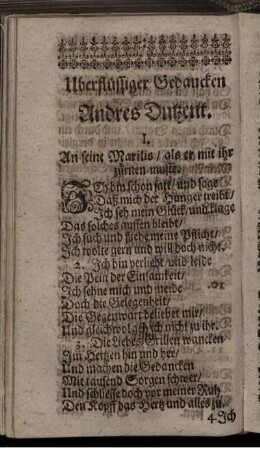 Uberflüssiger Gedancken
Andres Dutzent.
I.
An seine Marilis / als er mit ihr
zürnen muste.
ICh bin schon satt / und sage
Daß mich der Hunger treibt /
Ich seh mein Glück / und klage
Das solches aussen bleibt /
Ich such und fliehe meine Pflicht /
Ich wolte gern und will doch nicht.
2. Ich bin verliebt / und leide
Die Pein der Einsamkeit /
Ich sehne mich und meide
Doch die Gelegenheit /
Die Gegenwart beliebet mir /
Und gleichwol geh ich nicht zu ihr.
3. Die Liebes-Grillen wancken
Im Hertzen hin und her /
Und machen die Gedancken
Mit tausend Sorgen schwer /
Und schliesse doch vor meiner Ruh
Den Kopff das Hertz und alles zu.
4. Ich